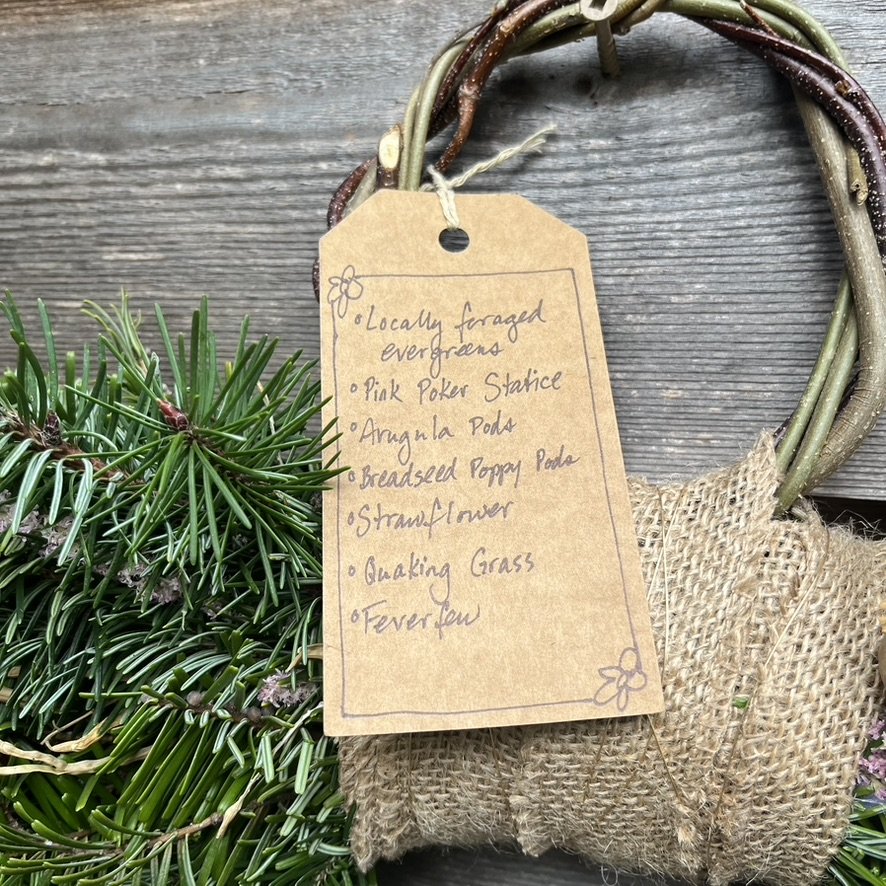 • Locally foraged
evergreens
• Pink Poker Statice
• Arugula Pods
• Breadseed Poppy Pods
• Strawflower
• Quaking Grass
• Feverfew